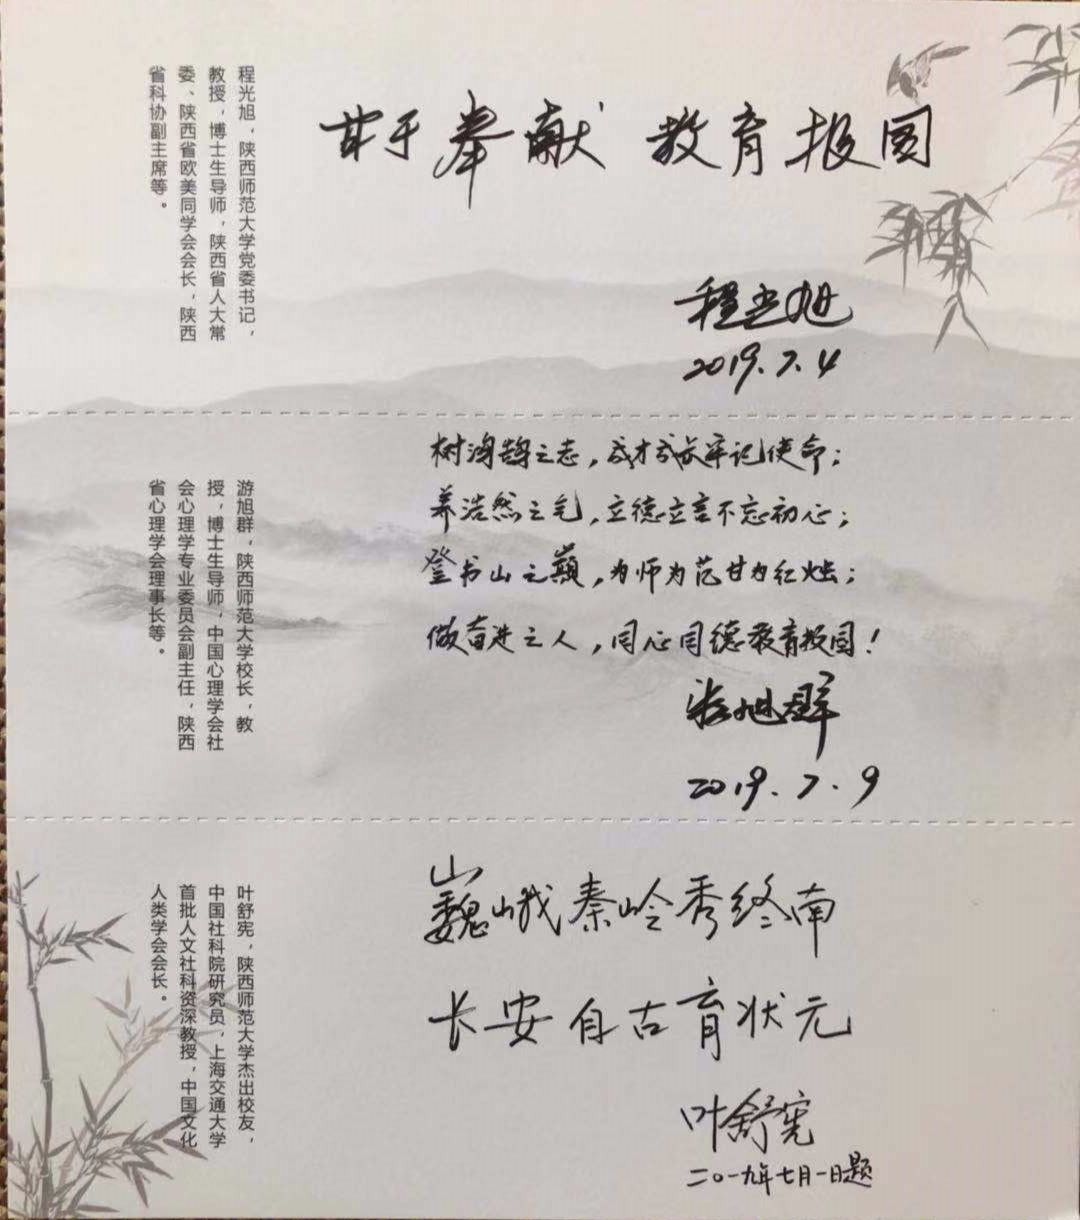 程光旭，陕西师范大学党委书记，
教授，博士生导师，陕西省人大常
委、陕西省欧美同学会会长，陕西
省科协副主席等。
甘于奉献 教育报国
程光旭
2019.7.4
游旭群，陕西师范大学校长，教
授，博士生导师，中国心理学会社
会心理学专业委员会副主任，陕西
省心理学会理事长等。
树鸿鹄之志，成才成长牢记使命；
养浩然之气，立德立言不忘初心；
登书山之巅，为师为范甘为红烛；
做奋进之人，同心同德教育报国！
游旭群
2019.7.9
叶舒宪，陕西师范大学杰出校友，
中国社科院研究员，上海交通大学
首批人文社科资深教授，中国文化
人类学会会长。
巍峨秦岭秀终南
长安自古育状元
叶舒宪
二〇一九年七月一日题